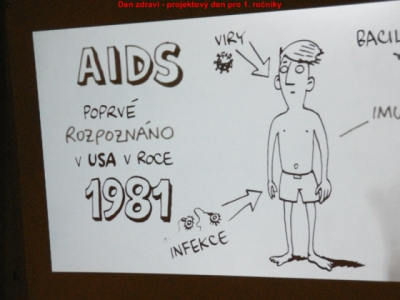 Den zdraví - projektový den pro 1. ročníky
AIDS
POPRVÉ
ROZPOZNÁNO
V USA V ROCE
1981
VIRY
INFEKCE
BACIL
IMU